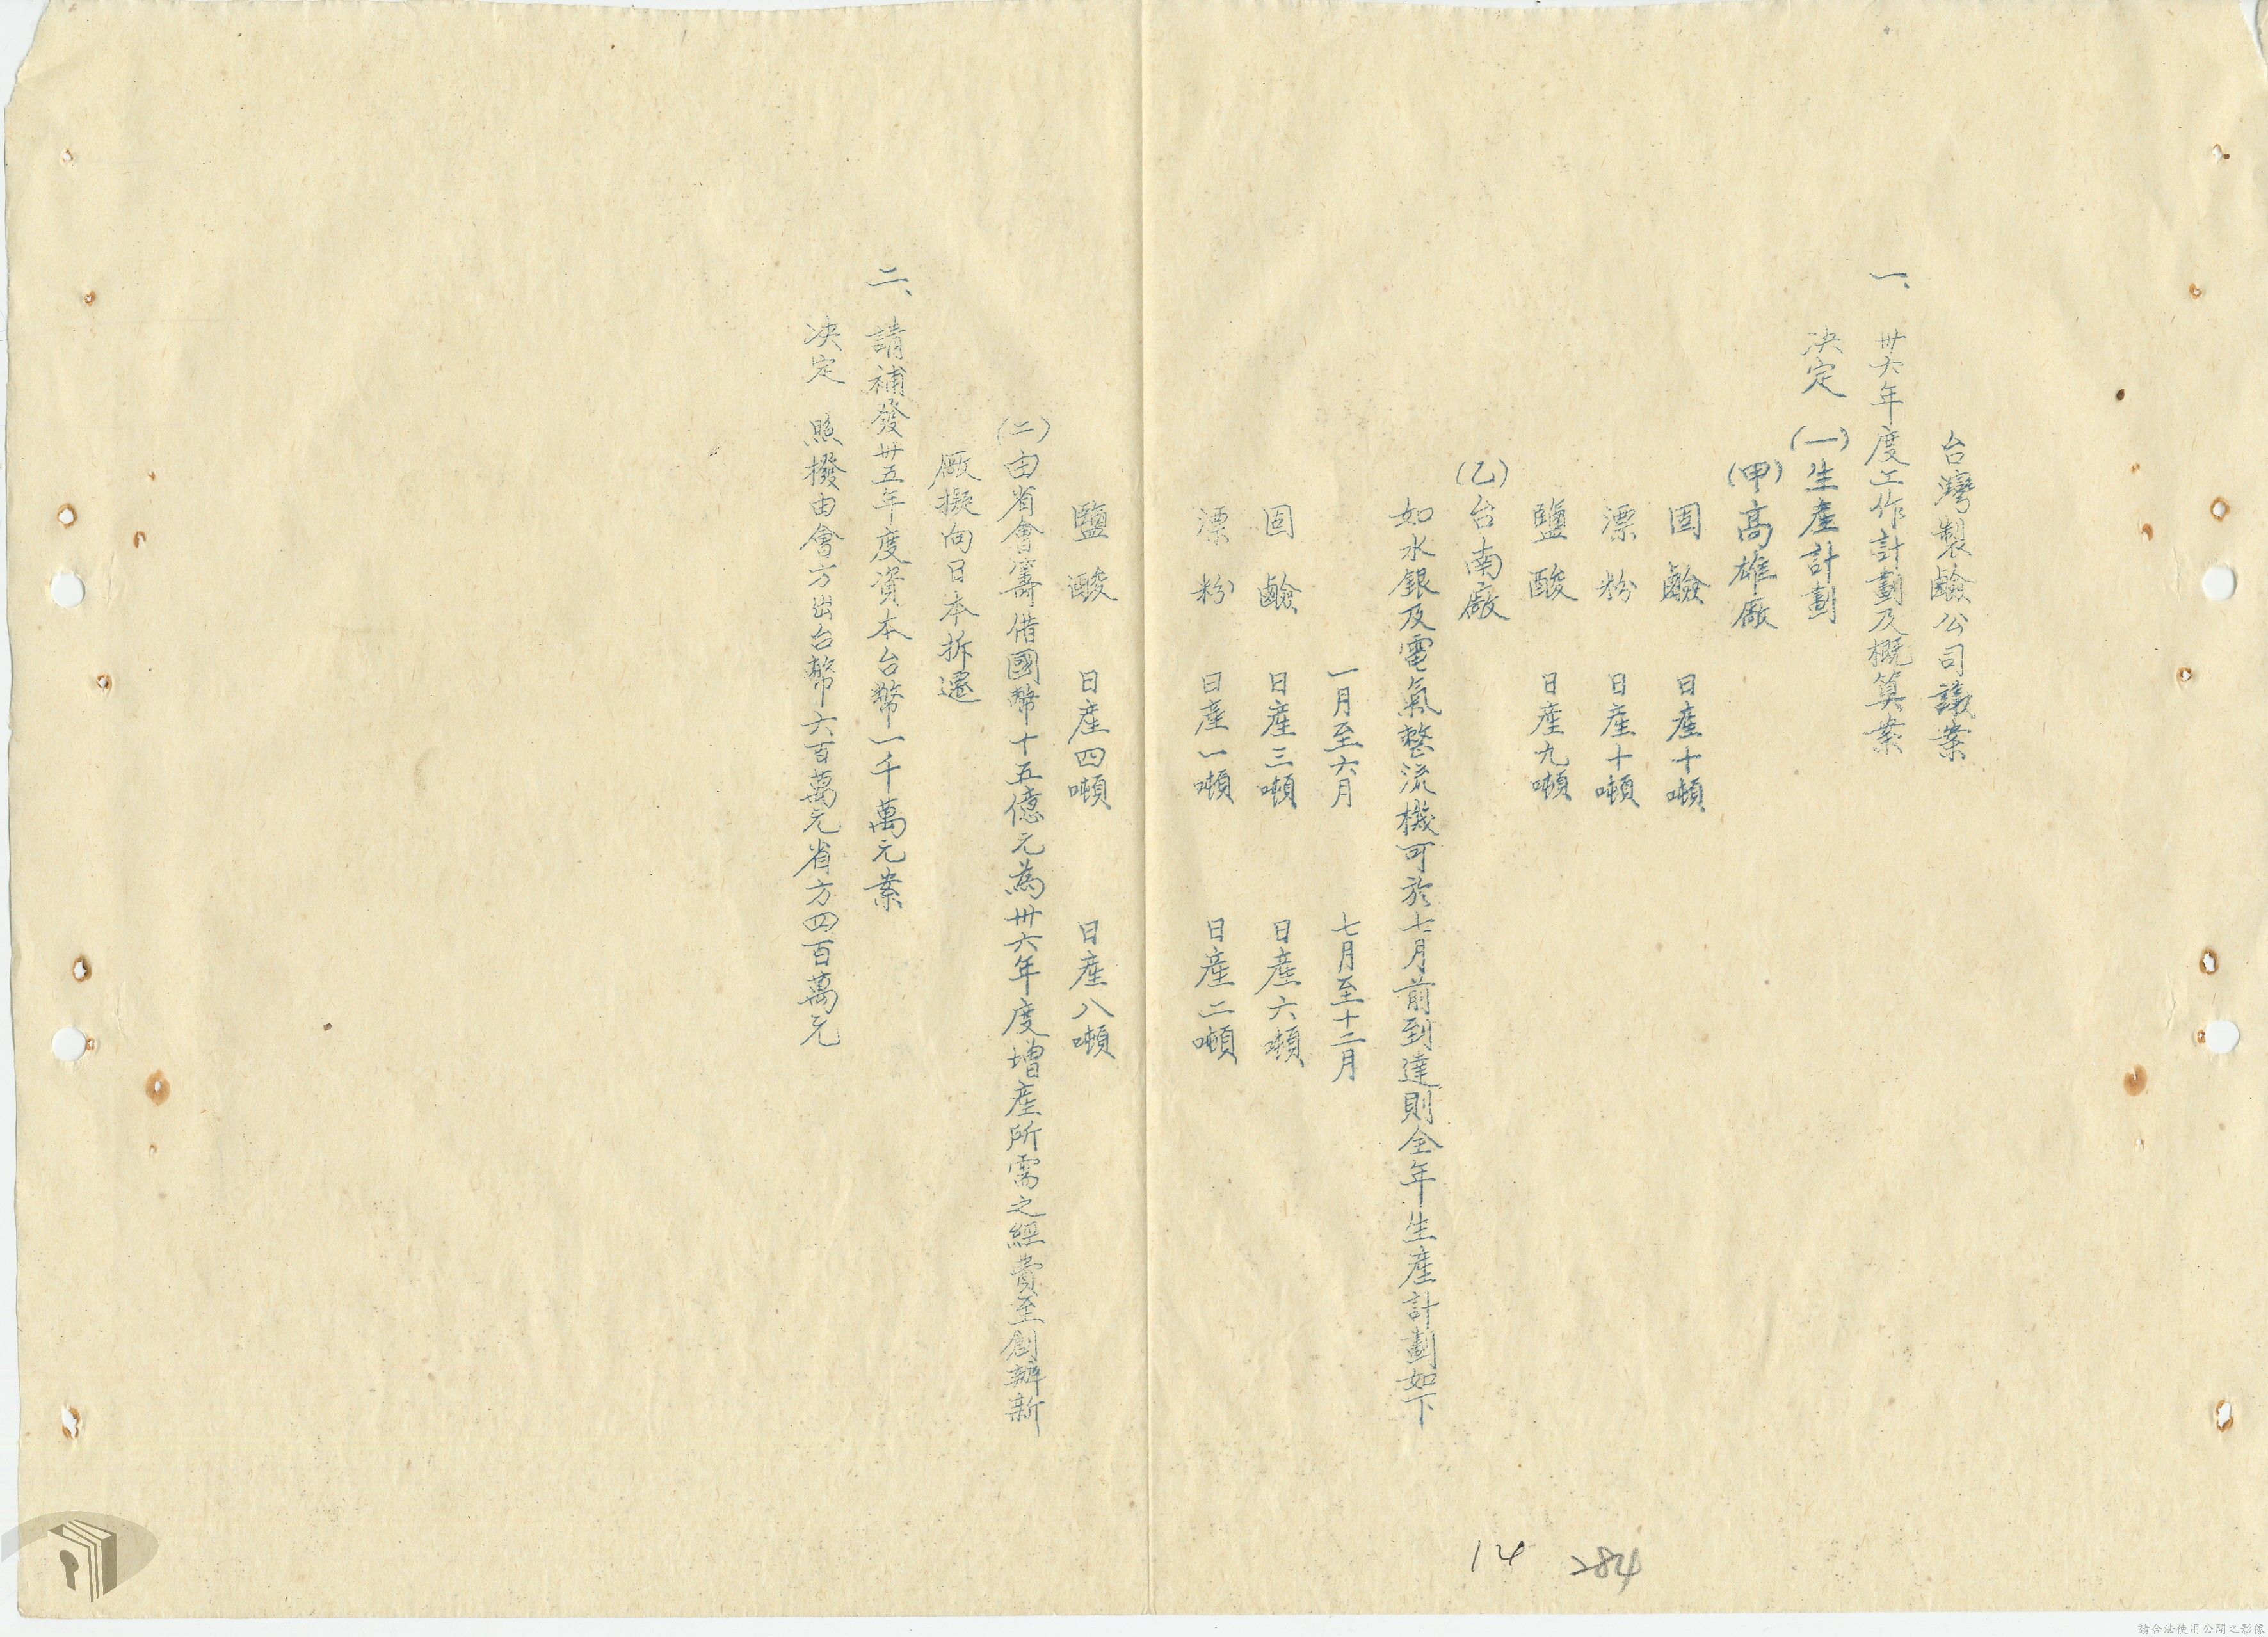 台灣製鹼公司議案
一、卅六年度工作計劃及概算案
決定 (一)生產計劃
(甲)高雄廠
固鹼 日產十噸
漂粉 日產十噸
鹽酸 日產九噸
(乙)台南廠
如水銀及電氣整流機可於七月前到達則全年生產計劃如下
一月至六月 七月至十二月
固鹼 日產三噸 日產六噸
漂粉 日產一噸 日產二噸
鹽酸 日產四噸 日產八噸
(二)由省會籌借國幣十五億元為卅六年度增產所需之經費至創辦新
廠擬向日本拆遷
二、請補發卅五年度資本台幣一千萬元案
決定 照撥由會方出台幣六百萬元省方四百萬元
14 284
請合法使用公開之影像